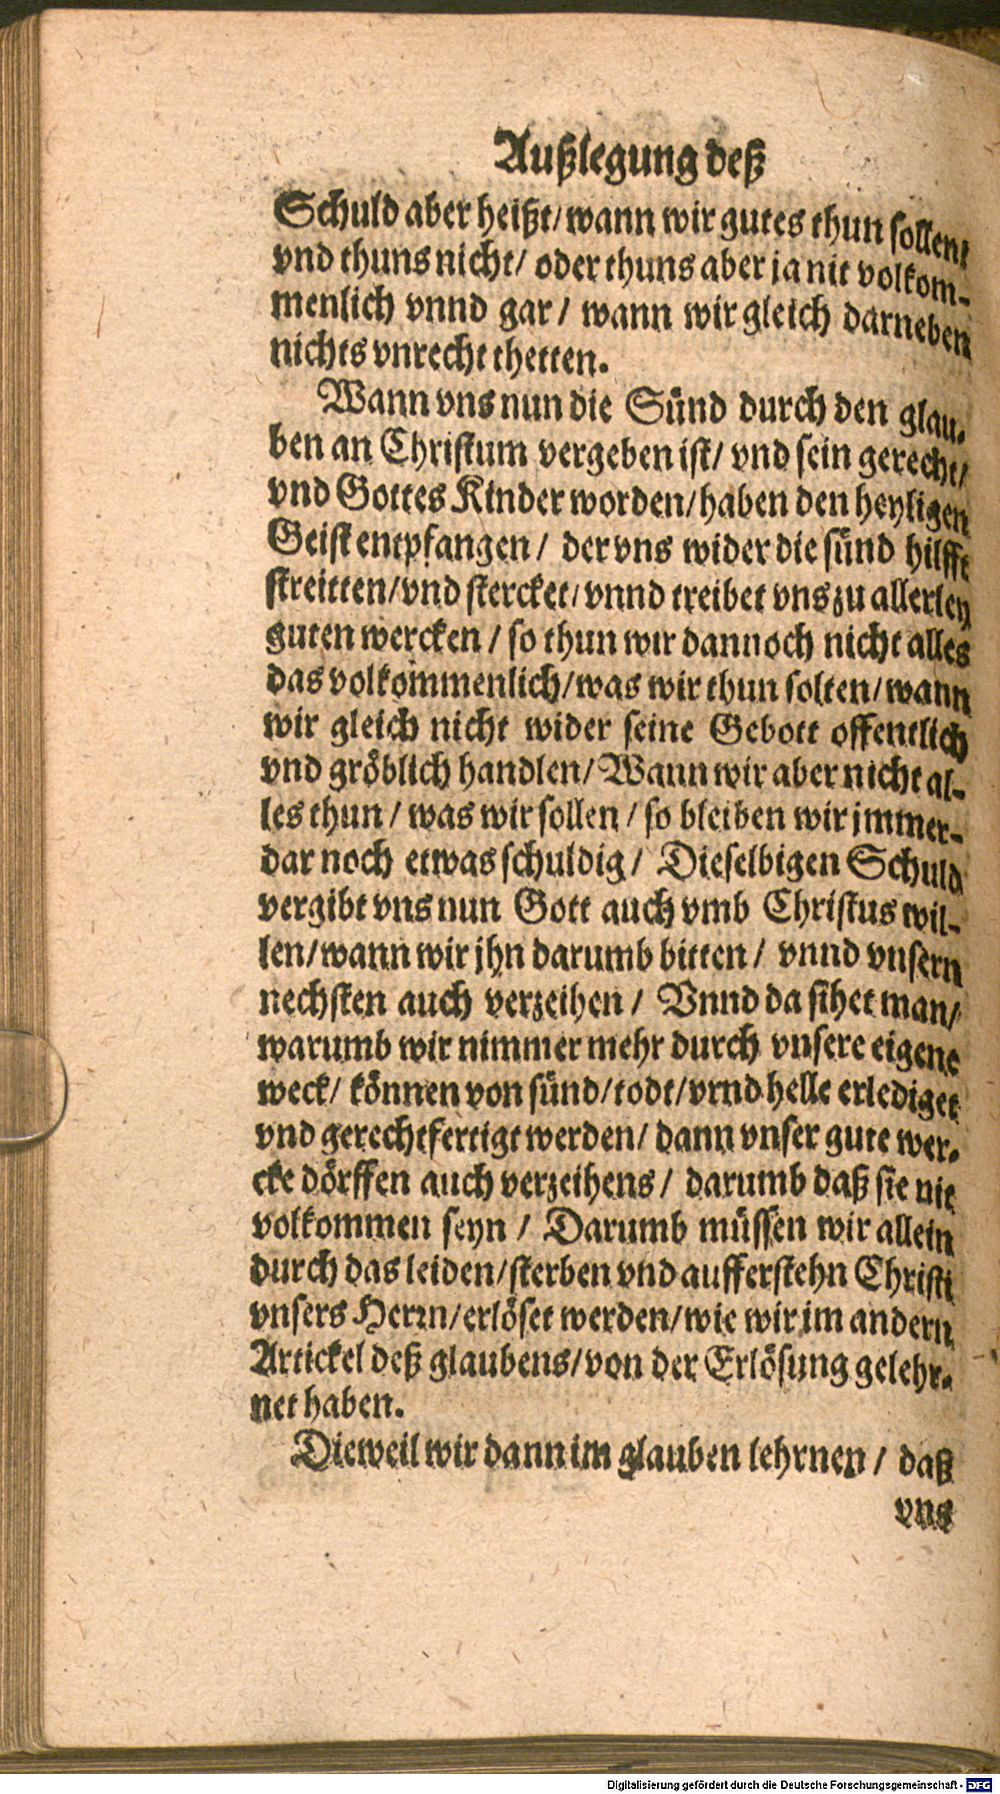 Außlegung deß
Schuld aber heißt/ wann wir gutes thun sollen/
vnd thuns nicht/ oder thuns aber ja nit volkom-
menlich vnnd gar/ wann wir gleich darneben
nichts vnrecht thetten.
Wann vns nun die Sünd durch den glau-
ben an Christum vergeben ist/ vnd sein gerecht/
vnd Gottes Kinder worden/ haben den heyligen
Geist entpfangen/ der vns wider die sünd hilfft
streitten/ vnd stercket/ vnnd treibet vns zu allerley
guten wercken/ so thun wir dannoch nicht alles
das volkommenlich/ was wir thun solten/ wann
wir gleich nicht wider seine Gebott offentlich
vnd gröblich handlen/ Wann wir aber nicht al-
les thun/ was wir sollen/ so bleiben wir jmmer-
dar noch etwas schuldig/ Dieselbigen Schuld
vergibt vns nun Gott auch vmb Christus wil-
len/ wann wir jhn darumb bitten/ vnnd vnsern
nechsten auch verzeihen/ Vnnd da sihet man/
warumb wir nimmer mehr durch vnsere eigene
weck/ können von sünd/ todt/ vnnd helle erlediget
vnd gerechtfertigt werden/ dann vnser gute wer-
cke dörffen auch verzeihens/ darumb daß sie nie
volkommen seyn/ Darumb müssen wir allein
durch das leiden/ sterben vnd aufferstehn Christi
vnsers Herrn/ erlöset werden/ wie wir im andern
Artickel deß glaubens/ von der Erlösung gelehr-
net haben.
Dieweil wir dann im glauben lehrnen/ daß
vns
Digitalisierung gefördert durch die Deutsche Forschungsgemeinschaft - DFG